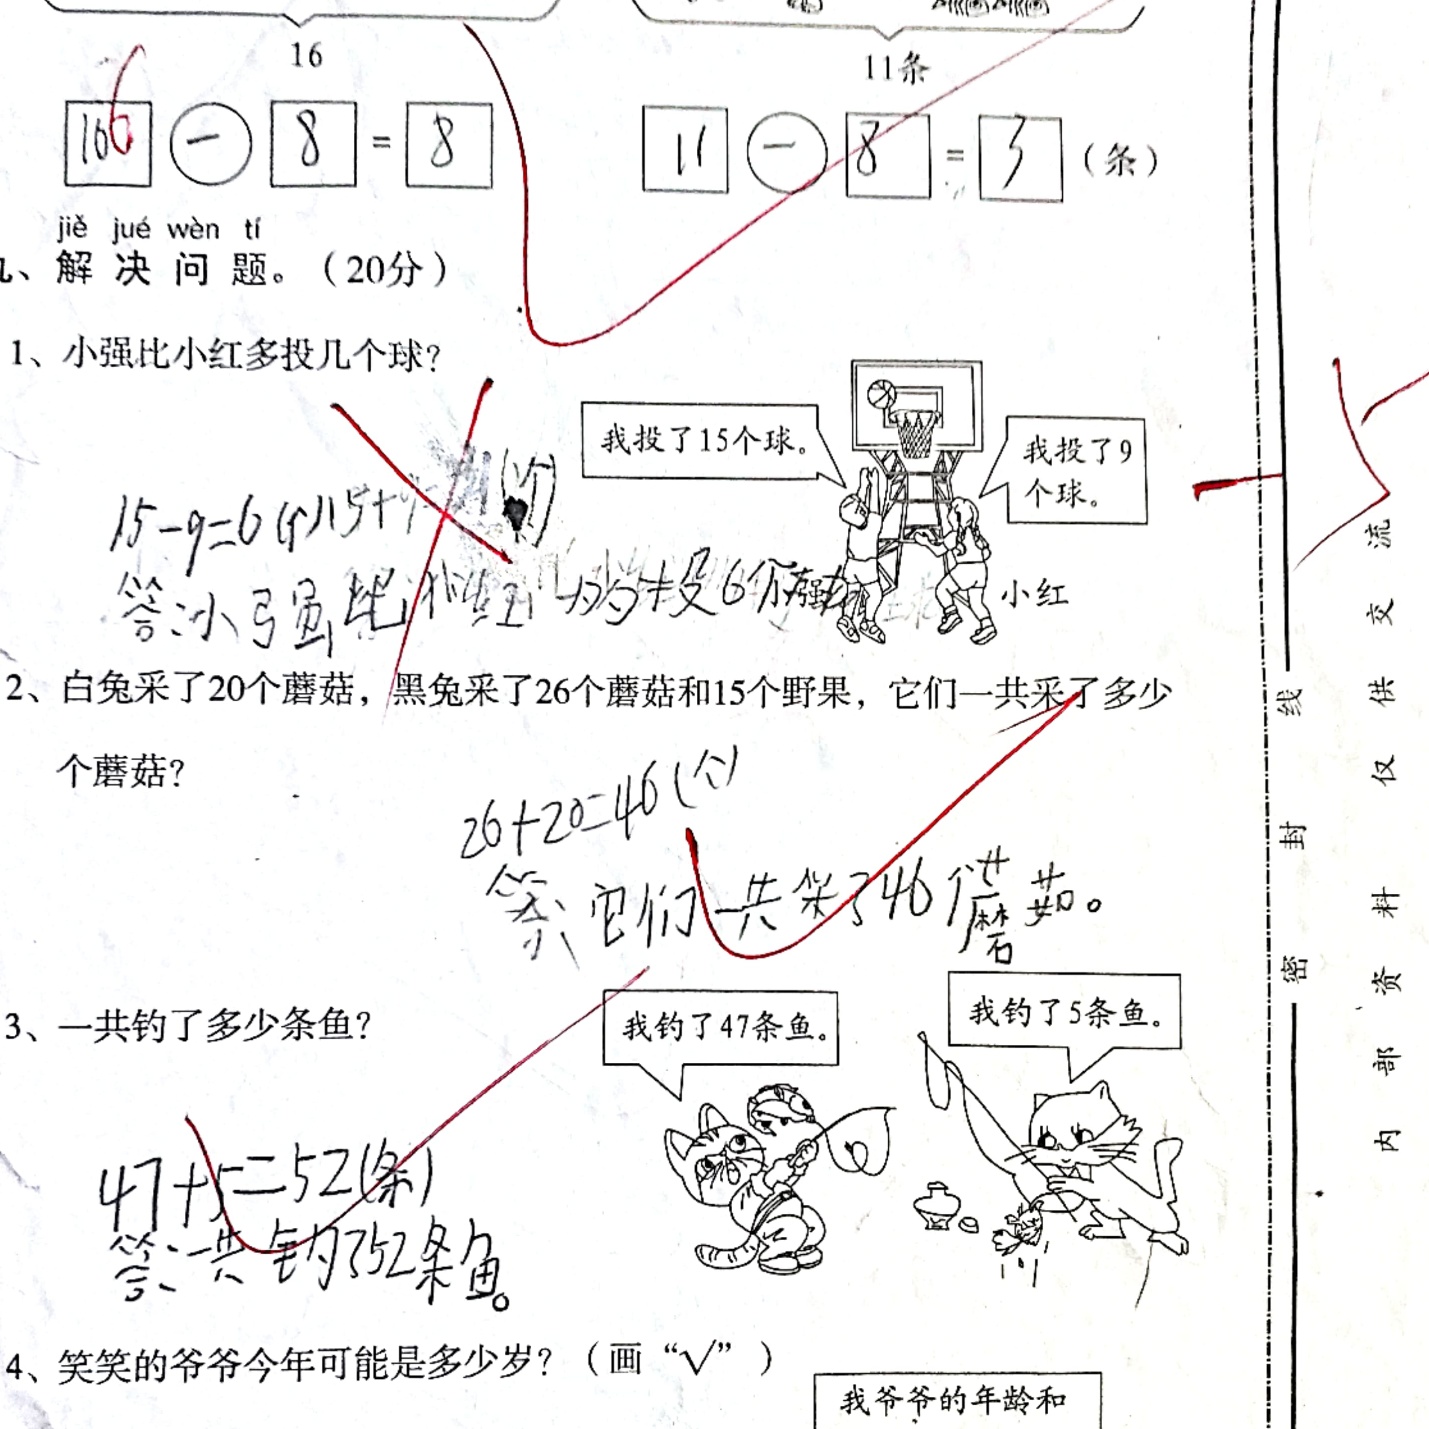 16
11条
16 - 8 = 8
11 - 8 = 3 (条)
jiě jué wèn tí
九、解决问题。(20分)
1、小强比小红多投几个球?
我投了15个球。
我投了9
个球。
15-9=6(个)
答:小强比小红
投6个
小红
2、白兔采了20个蘑菇,黑兔采了26个蘑菇和15个野果,它们一共采了多少
个蘑菇?
26+20=46(个)
答:它们一共采了46个蘑菇。
3、一共钓了多少条鱼?
我钓了47条鱼。
我钓了5条鱼。
47+5=52(条)
答:一共钓了52条鱼。
4、笑笑的爷爷今年可能是多少岁?(画“√”)
我爷爷的年龄和
密封线
内部资料仅供交流